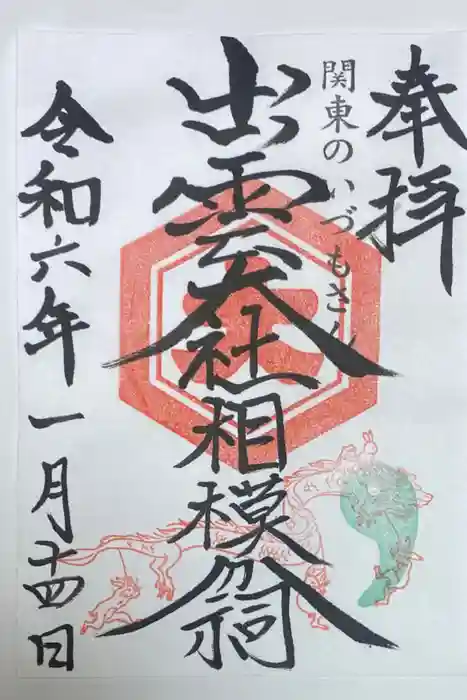 奉拝
関東のいづもさん
出雲大社相模分祠
令和六年一月十四日